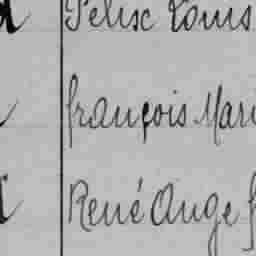 Félix Louis
françois Mari
René Ange f